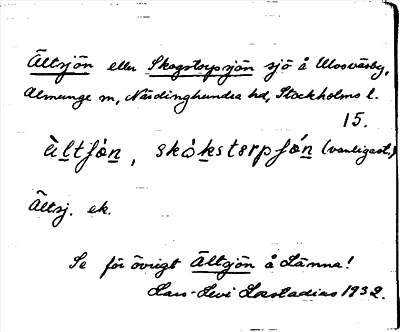 Ältsjön eller Skogstorpsjön sjö å Ulvsväsby,
Almunge sn, Närdinghundra hd, Stockholms l.
15.
(vanligast.)
Ältsj. ek.
Se för övrigt Ältsjön å Länna!
Lars-Levi Læstadius 1932.